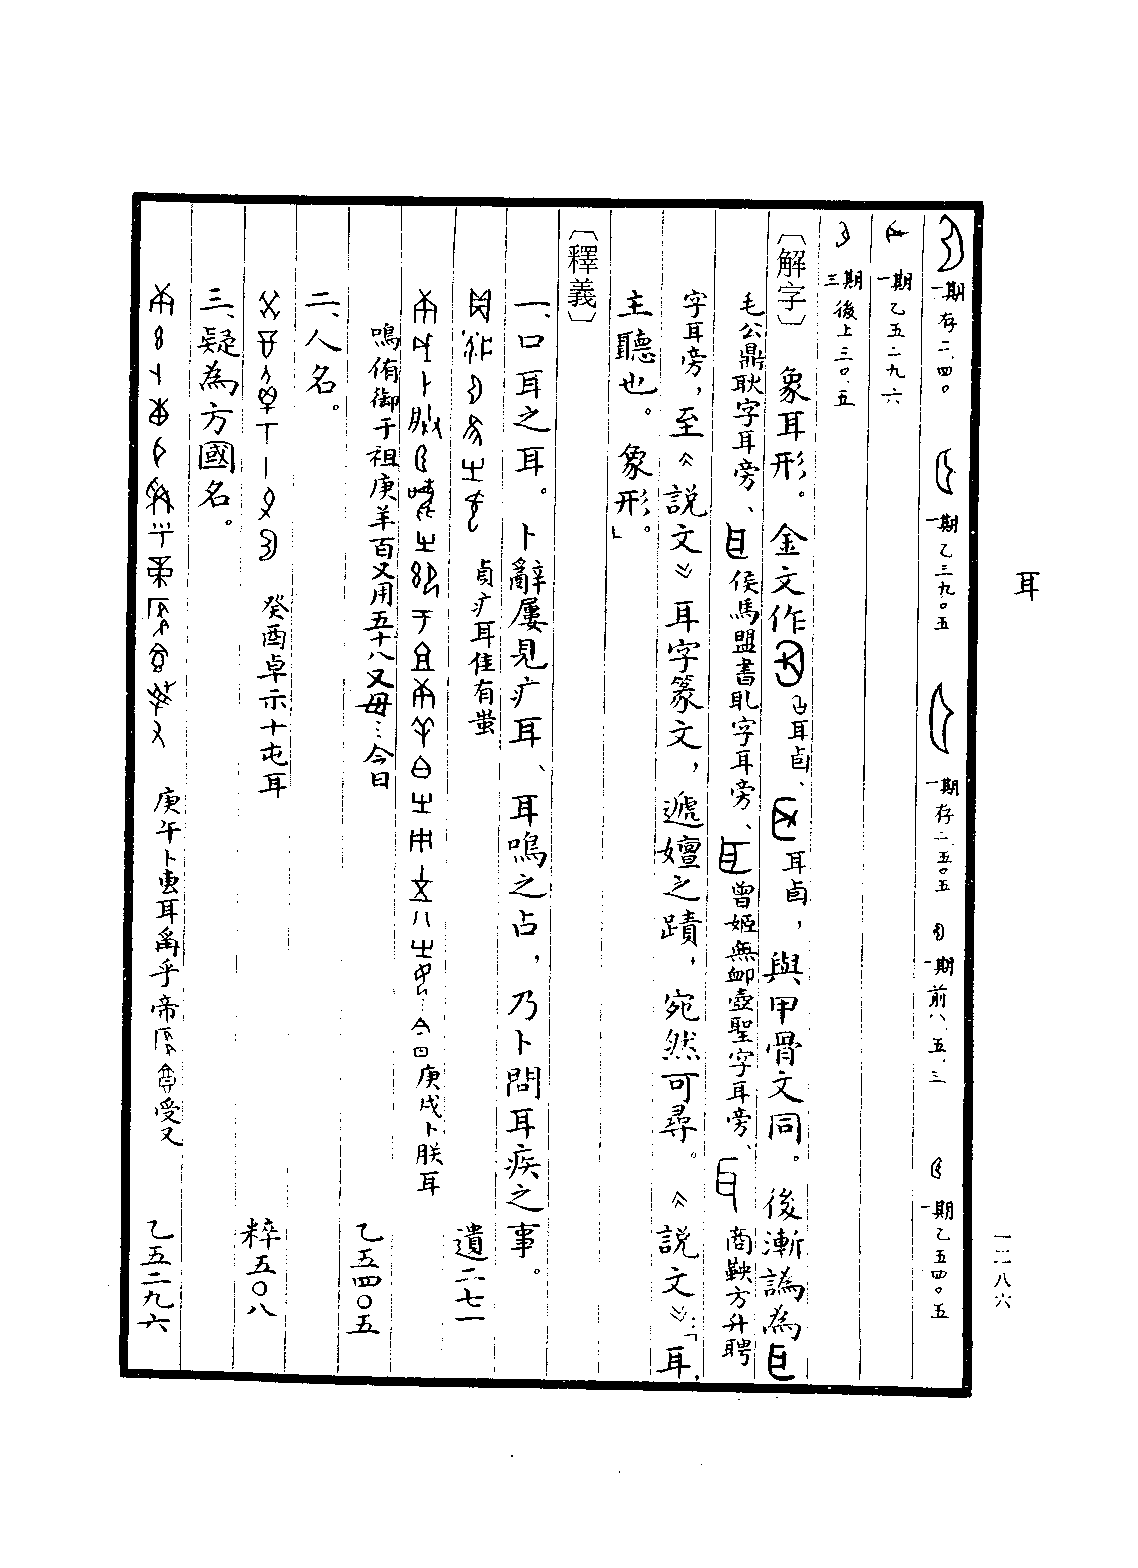 耳
一二八六
一期 存二.四〇 一期 乙三九〇五 一期 存二.五〇五 一期 前八.五.三 一期 乙五四〇五
一期 乙五二九六
三期 後上三〇.五
〔解字〕 象耳形。金文作 耳卣、耳卣，與甲骨文同。後漸譌為
毛公鼎耿字耳旁、侯馬盟書耴字耳旁、曾姬無卹壺聖字耳旁、商鞅方升聘
字耳旁，至《說文》耳字篆文，遞嬗之蹟，宛然可尋。《說文》：「耳，
主聽也。象形。」
〔釋義〕
一、口耳之耳。卜辭屢見疒耳、耳鳴之占，乃卜問耳疾之事。
貞疒耳隹有蚩 遺二七一
庚戌卜朕耳
鳴侑御于祖庚羊百又用五十八又毋…今日 乙五四〇五
二、人名。
癸酉卓示十屯耳 粹五〇八
三、疑為方國名。
庚午卜叀耳爯乎帝受又 乙五二九六